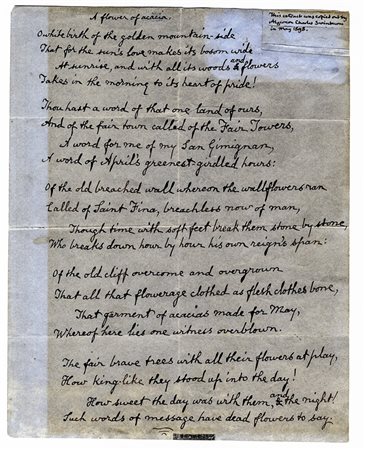 A flower of acacia.
This extract was copied out by
Algernon Charles Swinburne
in May 1898.
O white birth of the golden mountain-side
That for the sun's love makes its bosom wide
At sunrise, and with all its woods and & flowers
Takes in the morning to its heart of pride!
Thou hast a word of that one land of ours,
And of the fair town called of the Fair Towers,
A word for me of my San Gimignan,
A word of April's greenest-girdled hours:
Of the old breached wall whereon the wallflowers ran
Called of Saint Fina, breachless now of man,
Though time with soft feet break them stone by stone,
Who breaks down hour by hour his own reign's span:
Of the old cliff overcome and overgrown
That all that flowerage clothed as flesh clothes bone,
That garment of acacias made for May,
Whereof here lies one witness overblown.
The fair brave trees with all their flowers at play,
How king-like they stood up into the day!
How sweet the day was with them, and & the night!
Such words of message have dead flowers to say.